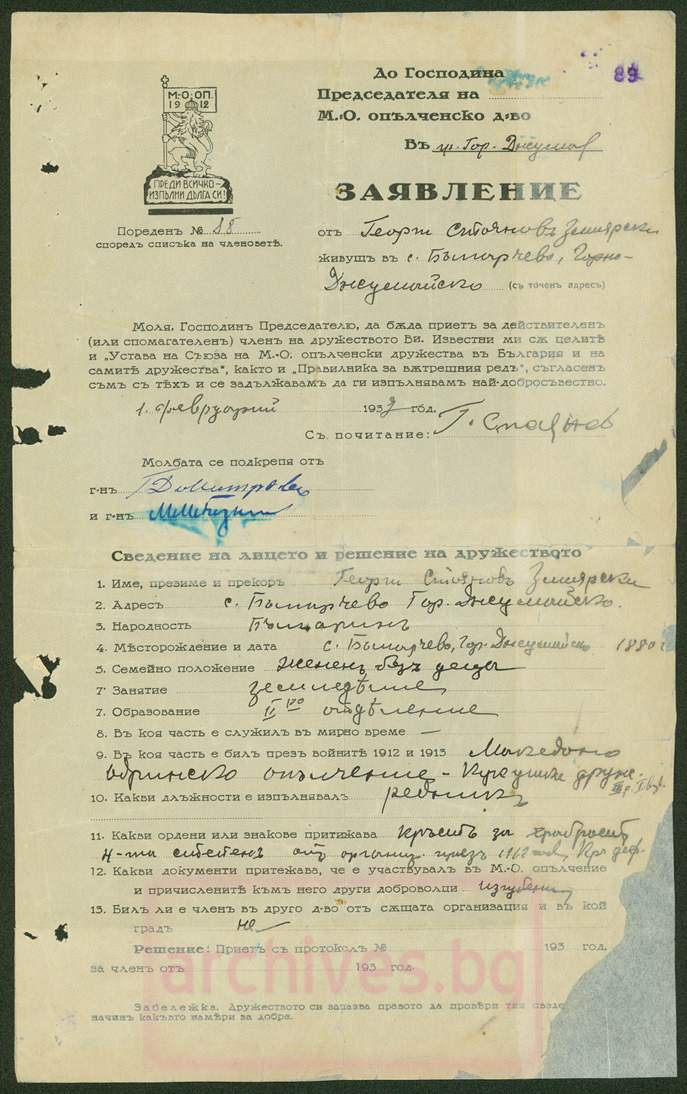 До Господина
89
Председателя на
М.-О. опълченско д-во
Въ гр. Гор. Джумая
М.-О. ОП.
1912
ПРЕДИ ВСИЧКО-
ИЗПЪЛНИ ДЪЛГА СИ!
ЗАЯВЛЕНИЕ
Пореденъ № 88
споредъ списъка на членоветѣ.
отъ Георги Стояновъ Змиярски
живущъ въ с. Българчево, Горно-
Джумайско (съ точенъ адресъ)
Моля, Господинъ Председателю, да бѫда приетъ за действителенъ
(или спомагателенъ) членъ на дружеството Ви. Известни ми сѫ целитѣ
и „Устава на Съюза на М.-О. опълченски дружества въ България и на
самитѣ дружества“, както и „Правилника за вѫтрешния редъ“, съгласенъ
съмъ съ тѣхъ и се задължавамъ да ги изпълнявамъ най-добросъвестно.
1. февруарий 193 год.
Съ почитание: Г. Стоянов
Молбата се подкрепя отъ
г-нъ
и г-нъ
Сведение на лицето и решение на дружеството
1. Име, презиме и прекоръ Георги Стояновъ Змиярски
2. Адресъ с. Българчево Гор. Джумайско.
3. Народность Българинъ
4. Месторождение и дата с. Българчево, Гор. Джумайско 1880 г
5. Семейно положение жененъ безъ деца
7. Занятие земледѣлие
7. Образование II отдѣление
8. Въ коя часть е служилъ въ мирно време —
9. Въ коя часть е билъ презъ войнитѣ 1912 и 1913 Македоно
одринско опълчение - Кукушка друж.
10. Какви длъжности е изпълнявалъ редникъ
11. Какви ордени или знакове притежава кръстъ за храбростъ
4-та степень
12. Какви документи притежава, че е участвувалъ въ М.-О. опълчение
и причисленитѣ къмъ него други доброволци изгубени
13. Билъ ли е членъ въ друго д-во отъ сѫщата организация и въ кой
градъ не
Решение: Приетъ съ протоколъ № 193 год.
за членъ отъ 193 год.
archives.bg
Забележка. Дружеството си запазва правото да провѣри тия сведе
начинъ какъвто намѣри за добра.